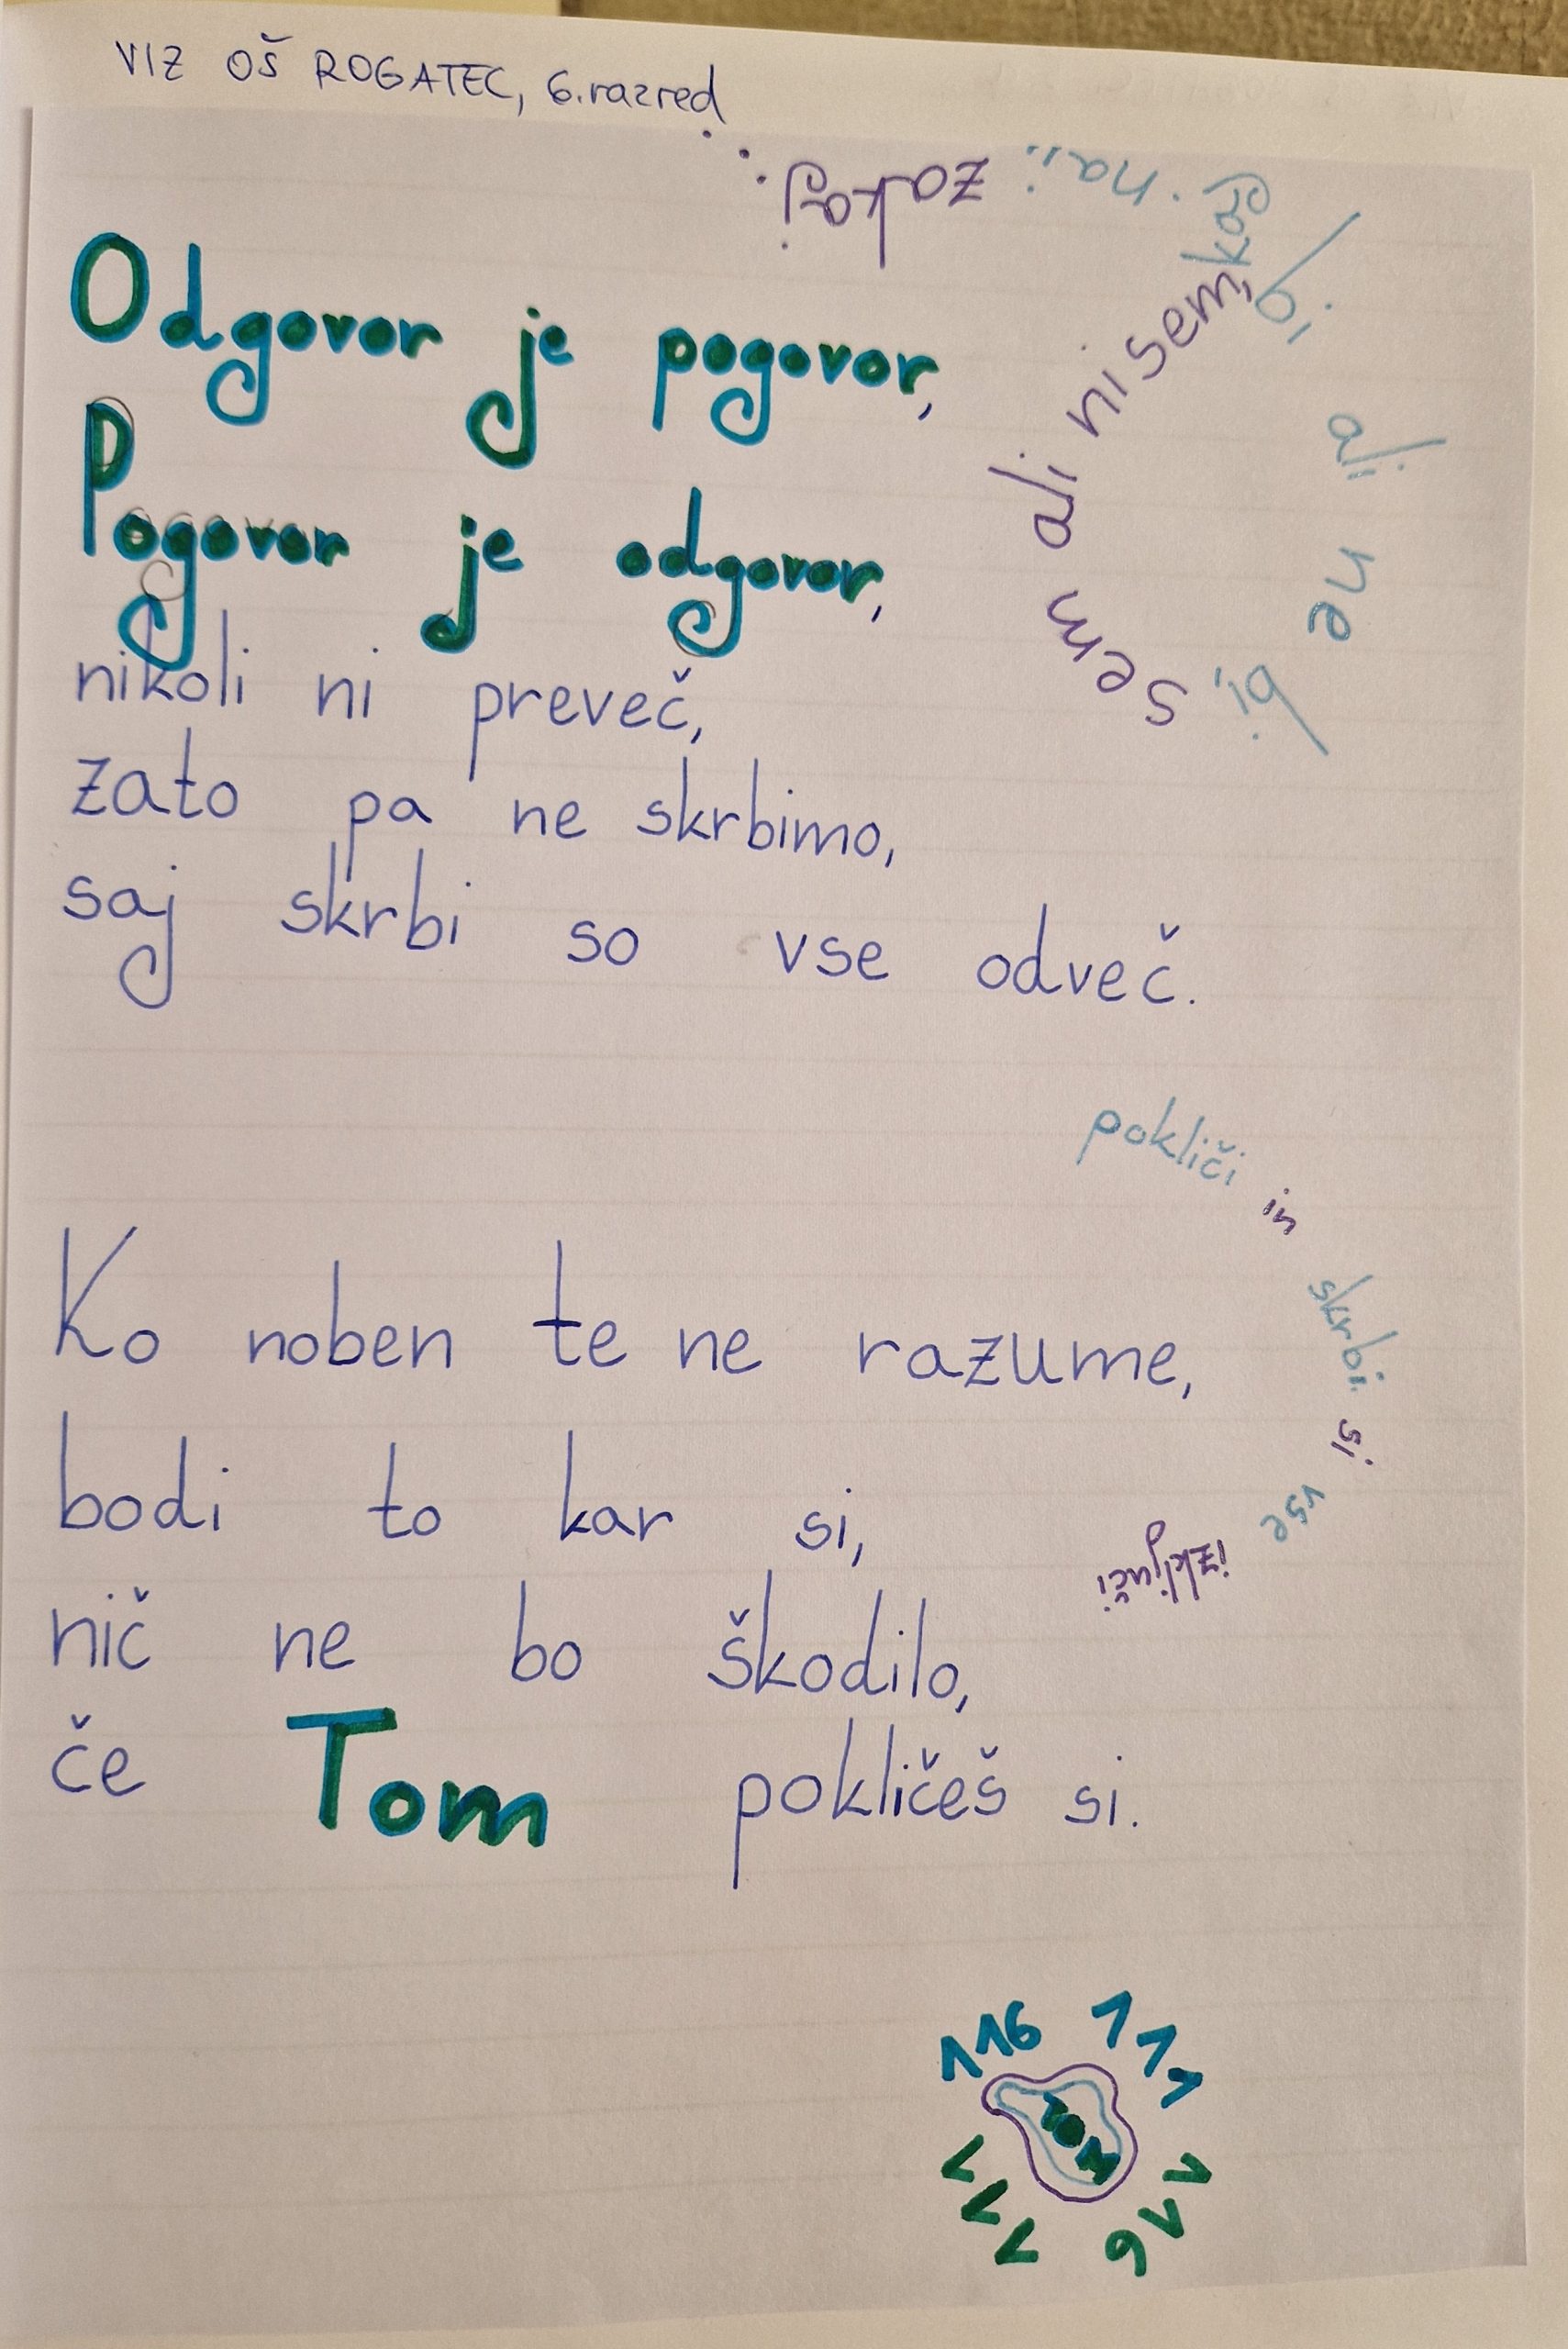 VIZ OŠ ROGATEC, 6. razred
Odgovor je pogovor,
Pogovor je odgovor,
nikoli ni preveč,
zato pa ne skrbimo,
saj skrbi so vse odveč.
bi ali ne bi, sem ali nisem, kaj naj... zakaj...
Ko noben te ne razume,
bodi to kar si,
nič ne bo škodilo,
če Tom pokličeš si.
pokliči in skrbi si vse izključi
116 111
TOM
116 111